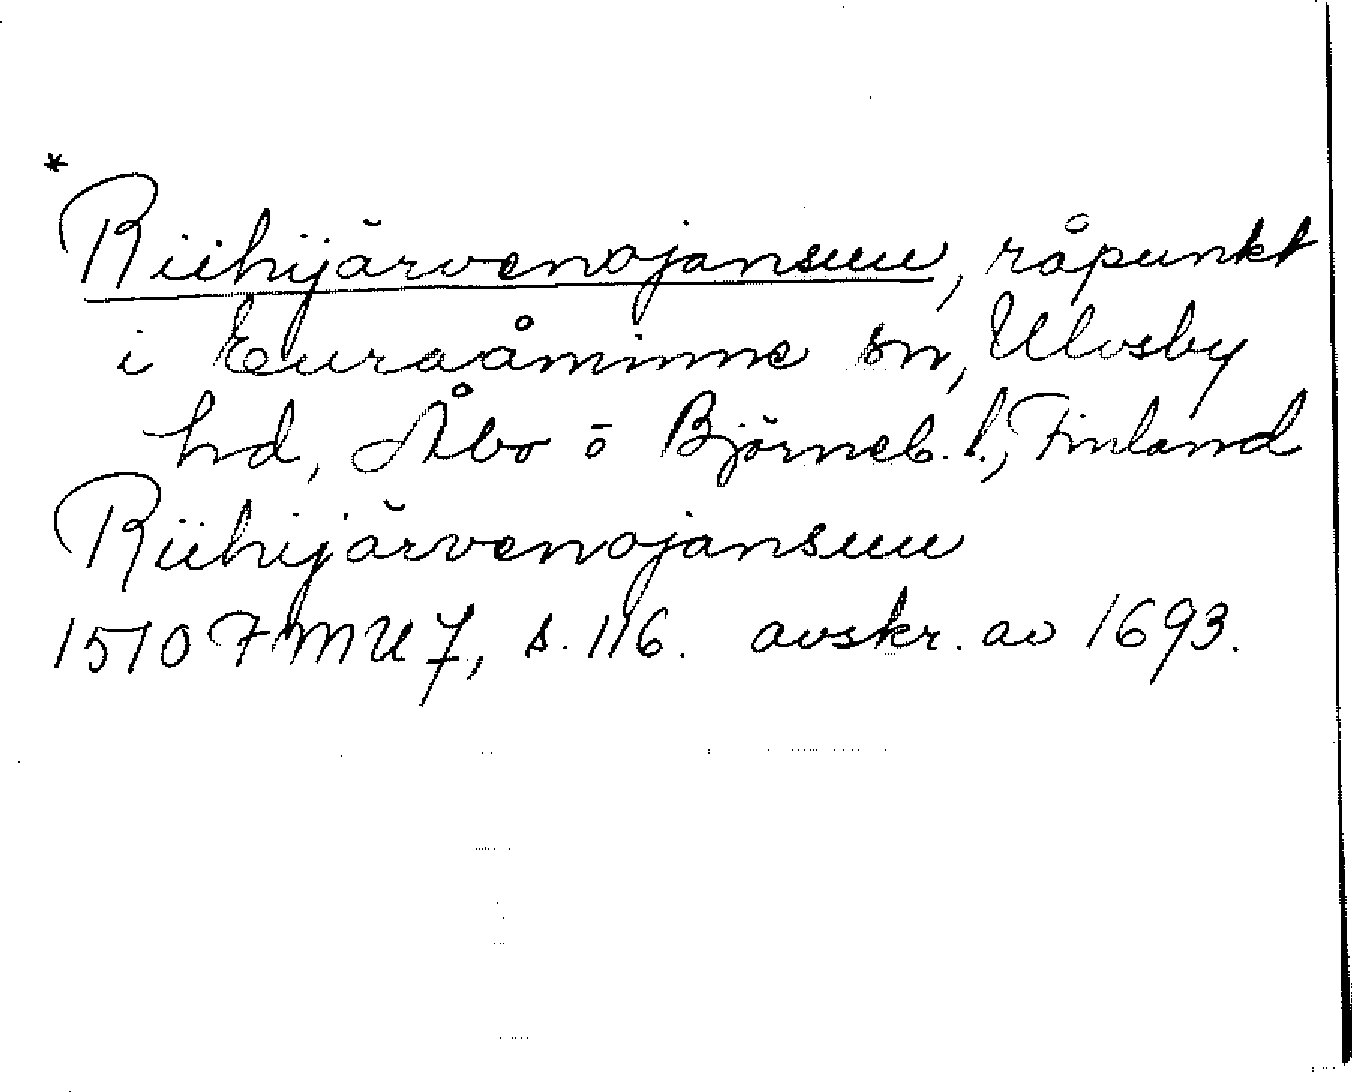 *
Riihijärvenojansuu, råpunkt
i Euraåminne sn, Ulvsby
hd, Åbo o Björneb. l., Finland
Riihijärvenojansuu
1510 FMU 7, s. 116. avskr. av 1693.